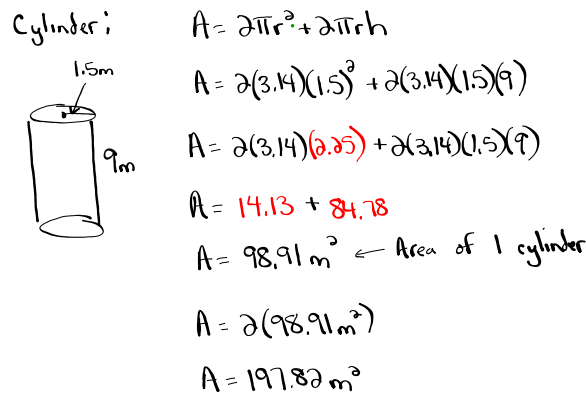 Cylinder;
A = 2πr² + 2πrh
1.5m
9m
A = 2(3.14)(1.5)² + 2(3.14)(1.5)(9)
A = 2(3.14)(2.25) + 2(3.14)(1.5)(9)
A = 14.13 + 84.78
A = 98.91 m² ← Area of 1 cylinder
A = 2(98.91m²)
A = 197.82 m²